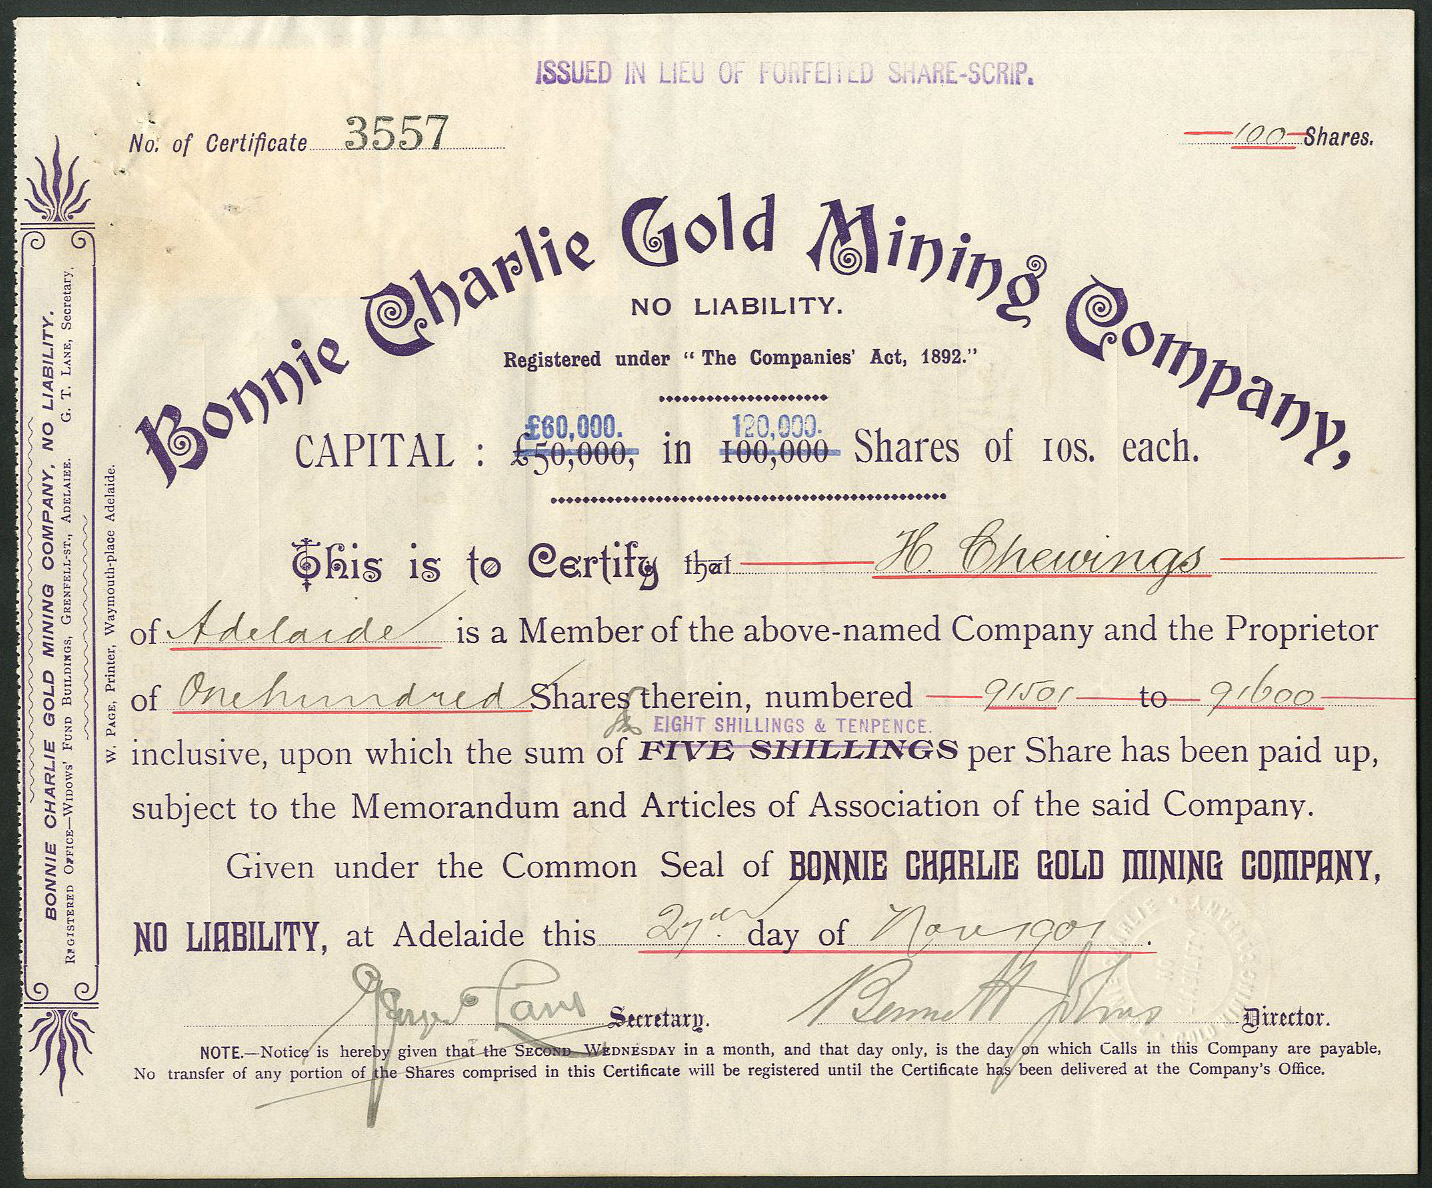 ISSUED IN LIEU OF FORFEITED SHARE-SCRIP.
No. of Certificate 3557
100 Shares.
Bonnie Charlie Gold Mining Company,
NO LIABILITY.
Registered under "The Companies' Act, 1892."
£60,000. 120,000.
CAPITAL : £50,000, in 100,000 Shares of 10s. each.
This is to Certify that H. Chewings
of Adelaide is a Member of the above-named Company and the Proprietor
of One hundred Shares therein, numbered 91501 to 91600
EIGHT SHILLINGS & TENPENCE.
inclusive, upon which the sum of FIVE SHILLINGS per Share has been paid up,
subject to the Memorandum and Articles of Association of the said Company.
Given under the Common Seal of BONNIE CHARLIE GOLD MINING COMPANY,
NO LIABILITY, at Adelaide this 27th day of Nov 1901.
George Lane Secretary. Bennett Johns Director.
NOTE.—Notice is hereby given that the SECOND WEDNESDAY in a month, and that day only, is the day on which Calls in this Company are payable,
No transfer of any portion of the Shares comprised in this Certificate will be registered until the Certificate has been delivered at the Company's Office.
BONNIE CHARLIE GOLD MINING COMPANY, NO LIABILITY.
REGISTERED OFFICE—WIDOWS' FUND BUILDINGS, GRENFELL-ST., ADELAIEE. G. T. LANE, Secretary,
W. PAGE, Printer, Waymouth-place Adelaide.